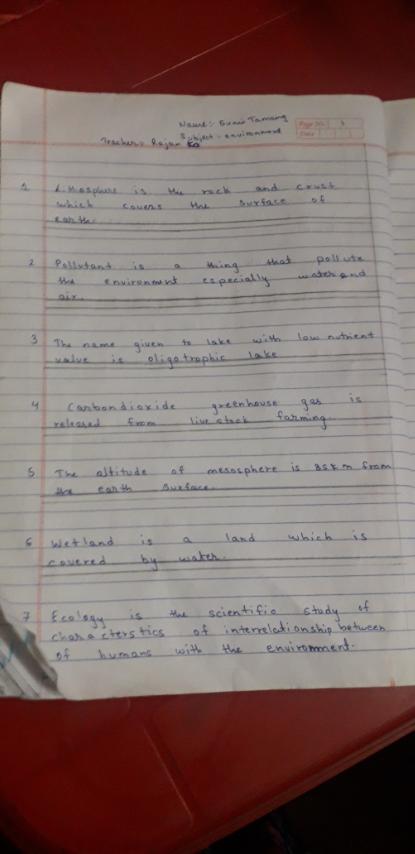 Name:- Tamang
Page No: 1
Date
Subject:- environment
Teacher:- Rajan
1 Lithosphere is the rock and crust
which covers the surface of
earth.
2 Pollutant is a thing that pollute
the environment especially water and
air.
3 The name given to lake with low nutrient
value is oligotrophic lake
4 Carbondioxide greenhouse gas is
released from live stock farming.
5 The altitude of mesosphere is 85km from
the earth surface.
6 Wetland is a land which is
covered by water.
7 Ecology is the scientific study of
characterstics of interrelationship between
of humans with the environment.